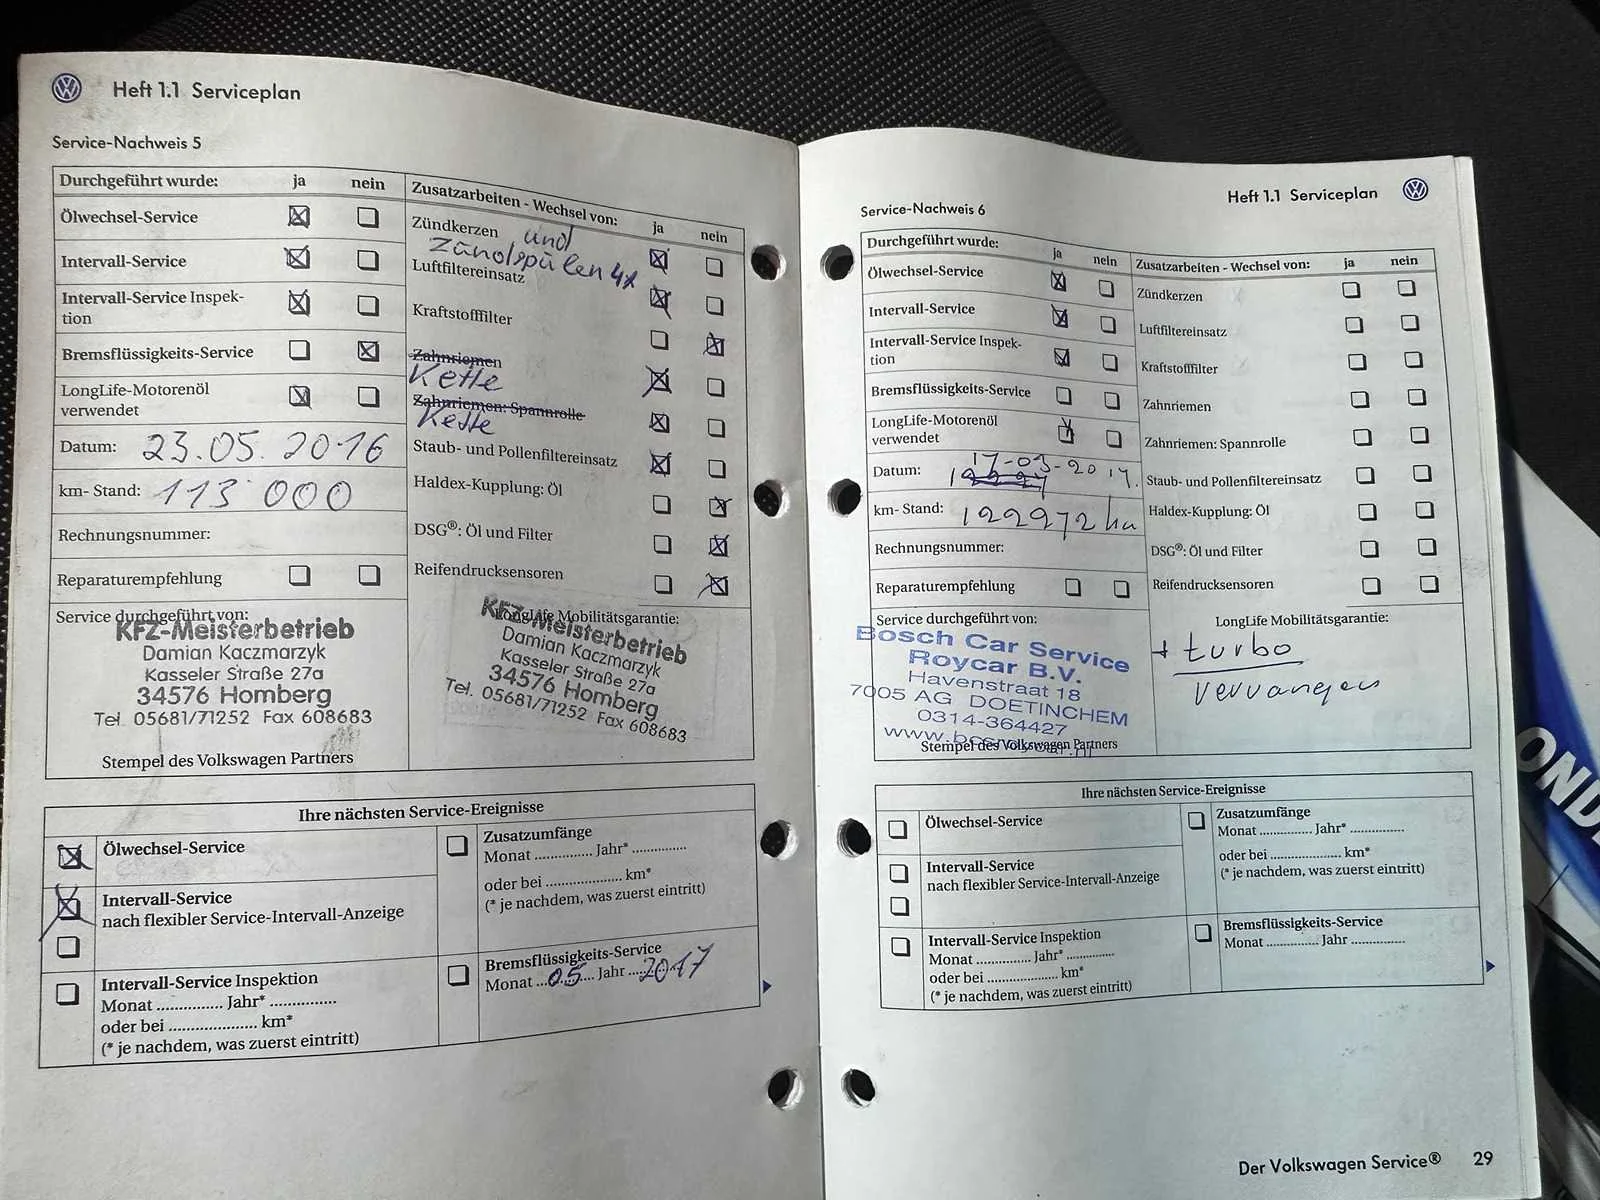 Heft 1.1 Serviceplan
Service-Nachweis 5
Durchgeführt wurde: ja nein
Ölwechsel-Service
Intervall-Service
Intervall-Service Inspek-
tion
Bremsflüssigkeits-Service
LongLife-Motorenöl
verwendet
Datum: 23.05.2016
km- Stand: 113 000
Rechnungsnummer:
Reparaturempfehlung
Service durchgeführt von:
KFZ-Meisterbetrieb
Damian Kaczmarzyk
Kasseler Straße 27a
34576 Homberg
Tel. 05681/71252 Fax 608683
Stempel des Volkswagen Partners
Zusatzarbeiten - Wechsel von: ja nein
Zündkerzen und
Zündspulen 4x
Luftfiltereinsatz
Kraftstofffilter
Zahnriemen
Kette
Zahnriemen: Spannrolle
Kette
Staub- und Pollenfiltereinsatz
Haldex-Kupplung: Öl
DSG®: Öl und Filter
Reifendrucksensoren
LongLife Mobilitätsgarantie:
KFZ-Meisterbetrieb
Damian Kaczmarzyk
Kasseler Straße 27a
34576 Homberg
Tel. 05681/71252 Fax 608683
Ihre nächsten Service-Ereignisse
Ölwechsel-Service
Intervall-Service
nach flexibler Service-Intervall-Anzeige
Intervall-Service Inspektion
Monat ............... Jahr* ...............
oder bei .................... km*
(* je nachdem, was zuerst eintritt)
Zusatzumfänge
Monat ............... Jahr* ...............
oder bei .................... km*
(* je nachdem, was zuerst eintritt)
Bremsflüssigkeits-Service
Monat ...05.... Jahr ...2017
Heft 1.1 Serviceplan
Service-Nachweis 6
Durchgeführt wurde: ja nein
Ölwechsel-Service
Intervall-Service
Intervall-Service Inspek-
tion
Bremsflüssigkeits-Service
LongLife-Motorenöl
verwendet
Datum: 17-03-2017.
km- Stand: 122972 km
Rechnungsnummer:
Reparaturempfehlung
Service durchgeführt von:
Bosch Car Service
Roycar B.V.
Havenstraat 18
7005 AG DOETINCHEM
0314-364427
Stempel des Volkswagen Partners
Zusatzarbeiten - Wechsel von: ja nein
Zündkerzen
Luftfiltereinsatz
Kraftstofffilter
Zahnriemen
Zahnriemen: Spannrolle
Staub- und Pollenfiltereinsatz
Haldex-Kupplung: Öl
DSG®: Öl und Filter
Reifendrucksensoren
LongLife Mobilitätsgarantie:
+ turbo
vervangen
Ihre nächsten Service-Ereignisse
Ölwechsel-Service
Intervall-Service
nach flexibler Service-Intervall-Anzeige
Intervall-Service Inspektion
Monat ............... Jahr* ...............
oder bei .................... km*
(* je nachdem, was zuerst eintritt)
Zusatzumfänge
Monat ............... Jahr* ...............
oder bei .................... km*
(* je nachdem, was zuerst eintritt)
Bremsflüssigkeits-Service
Monat ............... Jahr ...............
Der Volkswagen Service® 29